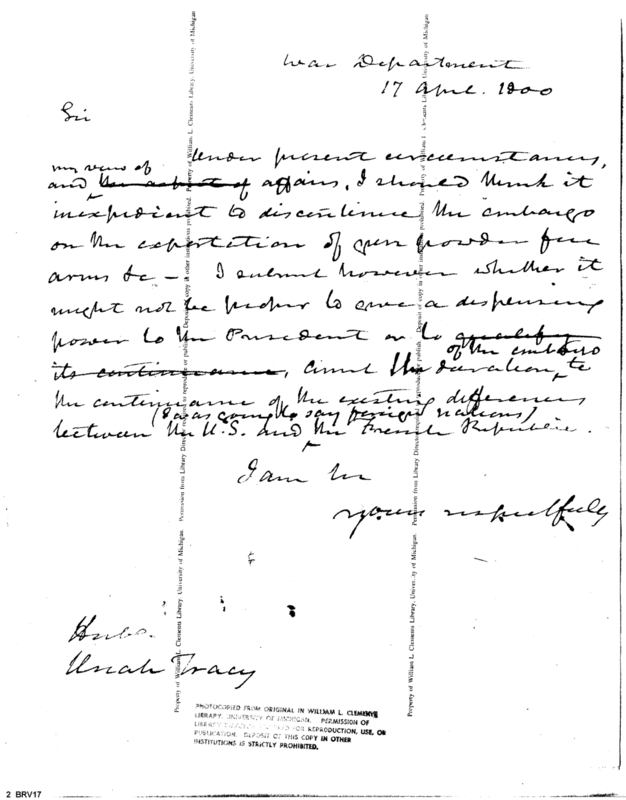 War Department
17 April. 1800
Sir
Under present circumstances,
my view of
and the aspect of affairs, I should think it
inexpedient to discontinue the embargo
on the exportation of gun powder fire
arms &c — I submit however whether it
might not be proper to give a dispensing
power to the President or to qualify
of the embargo
its continuance, limit the duration, to
the continuance of the existing differences
(I was going to say foreign nations)
between the U.S. and the French Republic.
I am Sir
yours respectfully
Honble.
Uriah Tracy
Property of William L. Clements Library, University of Michigan. Permission from Library Director required to reproduce or publish. Deposit of copy in other institutions prohibited.
PHOTOCOPIED FROM ORIGINAL IN WILLIAM L. CLEMENTS
LIBRARY, UNIVERSITY OF MICHIGAN. PERMISSION OF
LIBRARY DIRECTOR REQUIRED FOR REPRODUCTION, USE, OR
PUBLICATION. DEPOSIT OF THIS COPY IN OTHER
INSTITUTIONS IS STRICTLY PROHIBITED.
2 BRV17